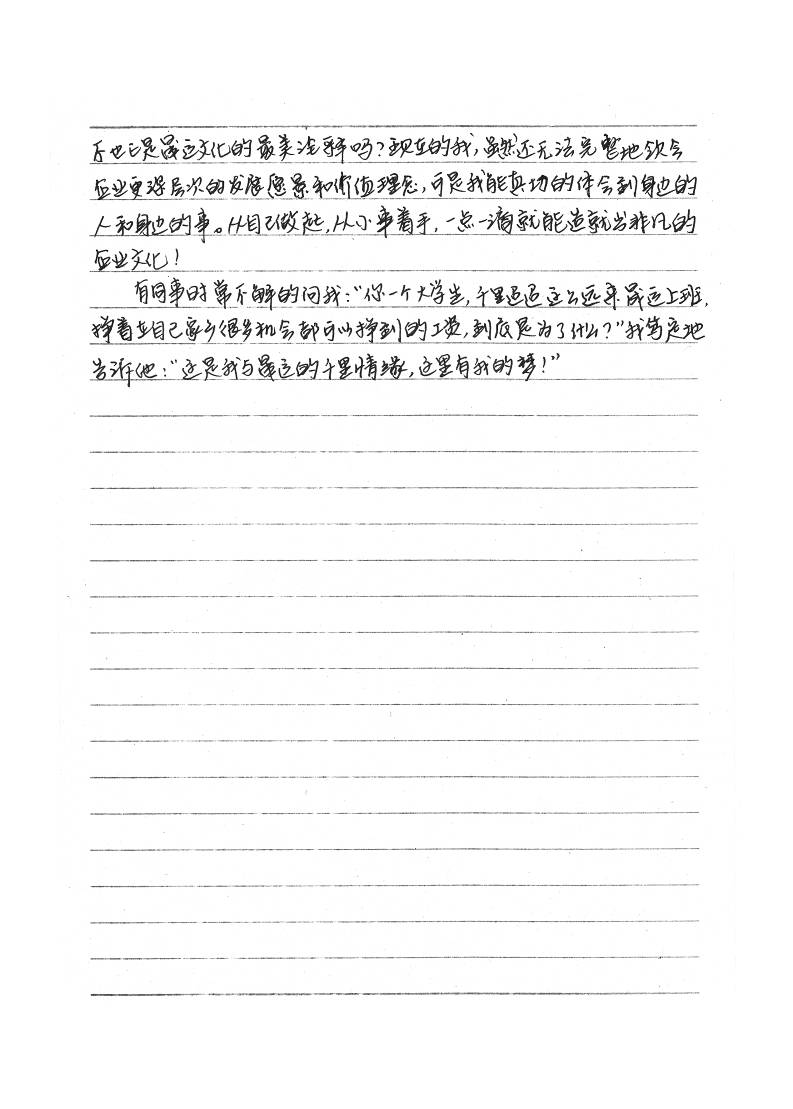 不也正是晟运文化的最美注释吗？现在的我，虽然还无法完整地领会
企业更深层次的发展愿景和价值理念，可是我能真切的体会到身边的
人和身边的事。从自己做起，从小事着手，一点一滴就能造就出非凡的
企业文化！
有同事时常不解的问我：“你一个大学生，千里迢迢这么远来晟运上班，
挣着在自己家乡很多机会都可以挣到的工资，到底是为了什么？”我笃定地
告诉他：“这是我与晟运的千里情缘，这里有我的梦！”